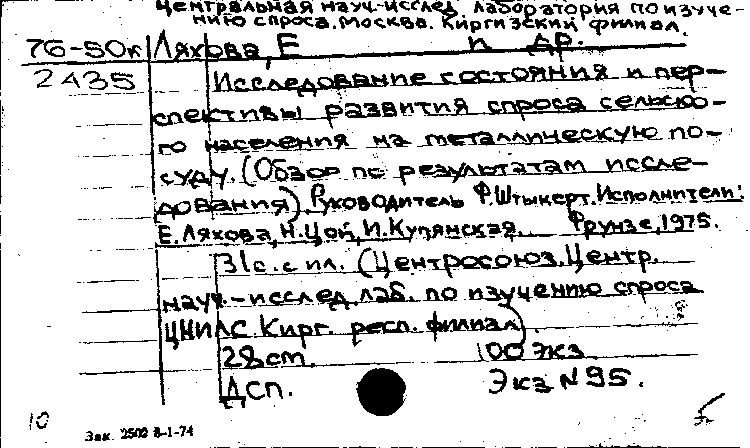 Центральная науч.-исслед. лаборатория по изуче-
нию спроса. Москва. Киргизский филиал.
76-50к Ляхова, Е и др.
2435 Исследование состояния и пер-
спективы развития спроса сельско-
го населения на металлическую по-
суду. (Обзор по результатам иссле-
дования). Руководитель Ф. Штыкерт. Исполнители:
Е. Ляхова, Н. Цой, И. Купянская. Фрунзе, 1975.
31с. с ил. (Центросоюз. Центр.
науч.-исслед. лаб. по изучению спроса
ЦНИЛС. Кирг. респ. филиал).
28 ст. 100 экз.
Дсп. Экз N 95.
10 Зак. 2502 8-1-74